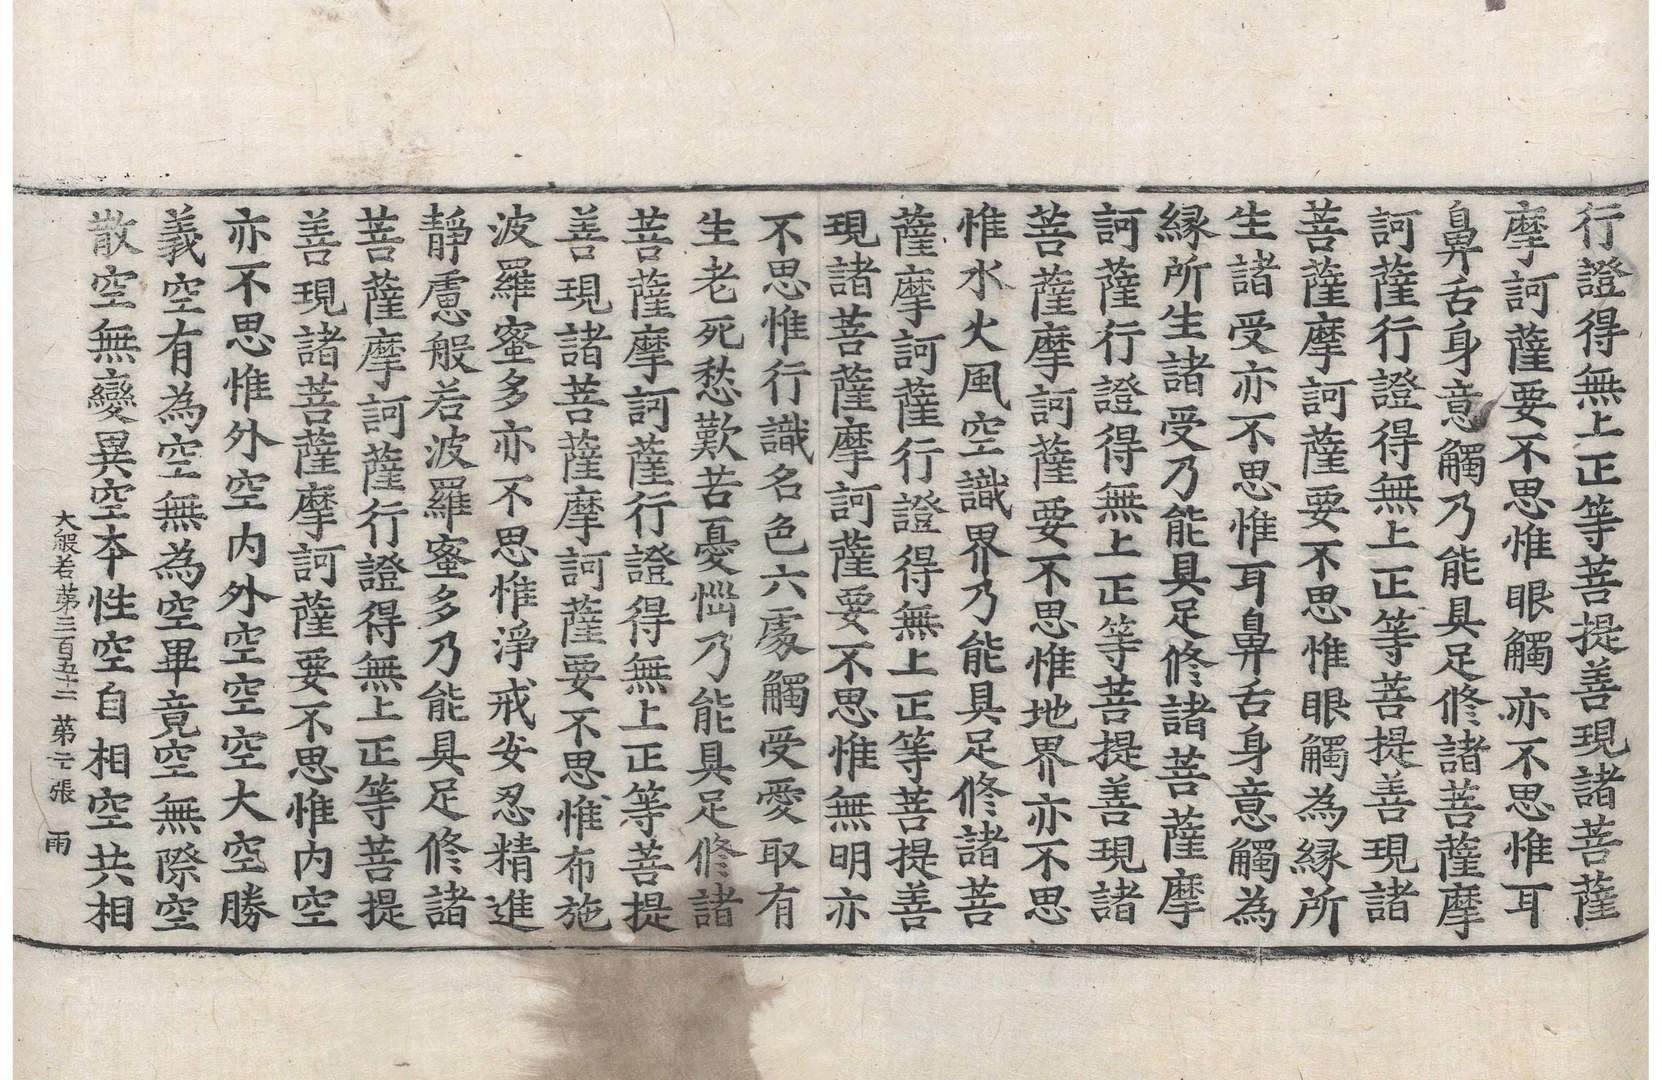 行證得無上正等菩提善現諸菩薩
摩訶薩要不思惟眼觸亦不思惟耳
鼻舌身意觸乃能具足修諸菩薩摩
訶薩行證得無上正等菩提善現諸
菩薩摩訶薩要不思惟眼觸為緣所
生諸受亦不思惟耳鼻舌身意觸為
緣所生諸受乃能具足修諸菩薩摩
訶薩行證得無上正等菩提善現諸
菩薩摩訶薩要不思惟地界亦不思
惟水火風空識界乃能具足修諸菩
薩摩訶薩行證得無上正等菩提善
現諸菩薩摩訶薩要不思惟無明亦
不思惟行識名色六處觸受愛取有
生老死愁歎苦憂惱乃能具足修諸
菩薩摩訶薩行證得無上正等菩提
善現諸菩薩摩訶薩要不思惟布施
波羅蜜多亦不思惟淨戒安忍精進
靜慮般若波羅蜜多乃能具足修諸
菩薩摩訶薩行證得無上正等菩提
善現諸菩薩摩訶薩要不思惟內空
亦不思惟外空內外空空空大空勝
義空有為空無為空畢竟空無際空
散空無變異空本性空自相空共相
大般若第三百五十二 第 張 雨